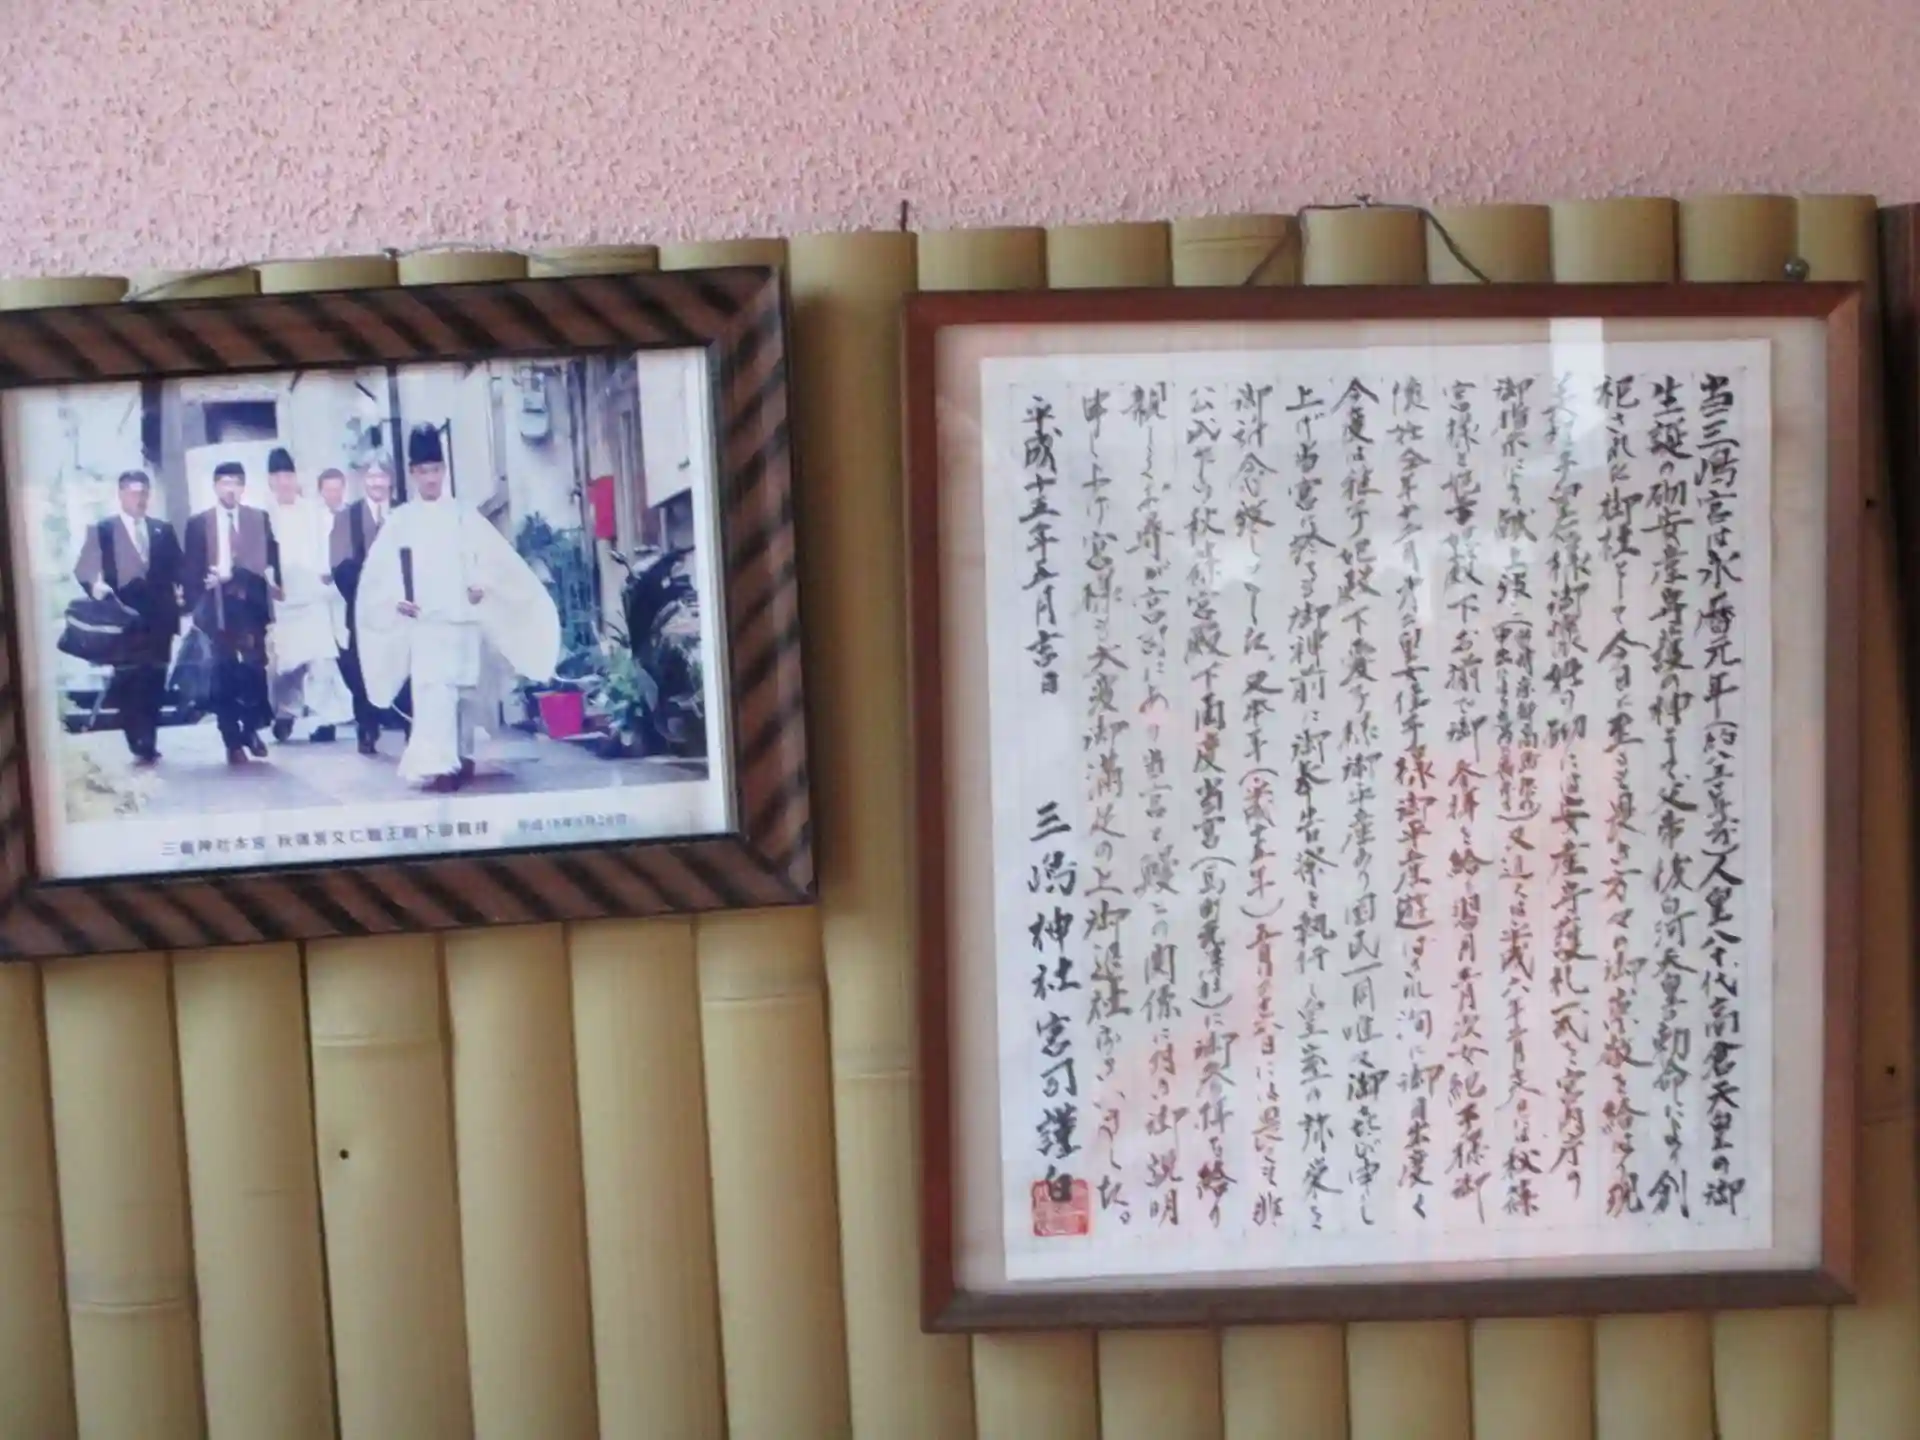 三嶋神社本宮 秋篠宮文仁親王殿下御親拝 平成15年5月26日
当三嶋宮は永暦元年(約八三〇年前)人皇八十代高倉天皇の御
生誕の砌安産守護の神として父帝後白河天皇の勅命により創
祀された御社として今日に至るも長き方々の御崇敬を給はり現
美智子皇后様御懐妊の砌には安産守護札一式を宮内庁の
御指示により献上後 又近くは平成六年 月 日には秋篠
宮様と妃殿下お揃で御参拝を給い翌月 月次女紀子様御
懐妊今年十二月 皇女佳子様御平産遊ばされ洵に御目出度く
今度は雅子妃殿下愛子様御平産あり国民一同唯々御喜び申し
上げ当宮に於ても御神前に御奉告祭を執行し皇室の弥栄を
御祈念致しました。又本年(平成十五年)五月二十六日には畏くも非
公式乍ら秋篠宮殿下両度当宮( )に御参拝を給り
親しくお尋が宮司にあり当宮と鰻との関係に付き御説明
申し上げ宮様も大変御満足の上御退社 いました。
平成十五年五月吉日
三嶋神社宮司謹白